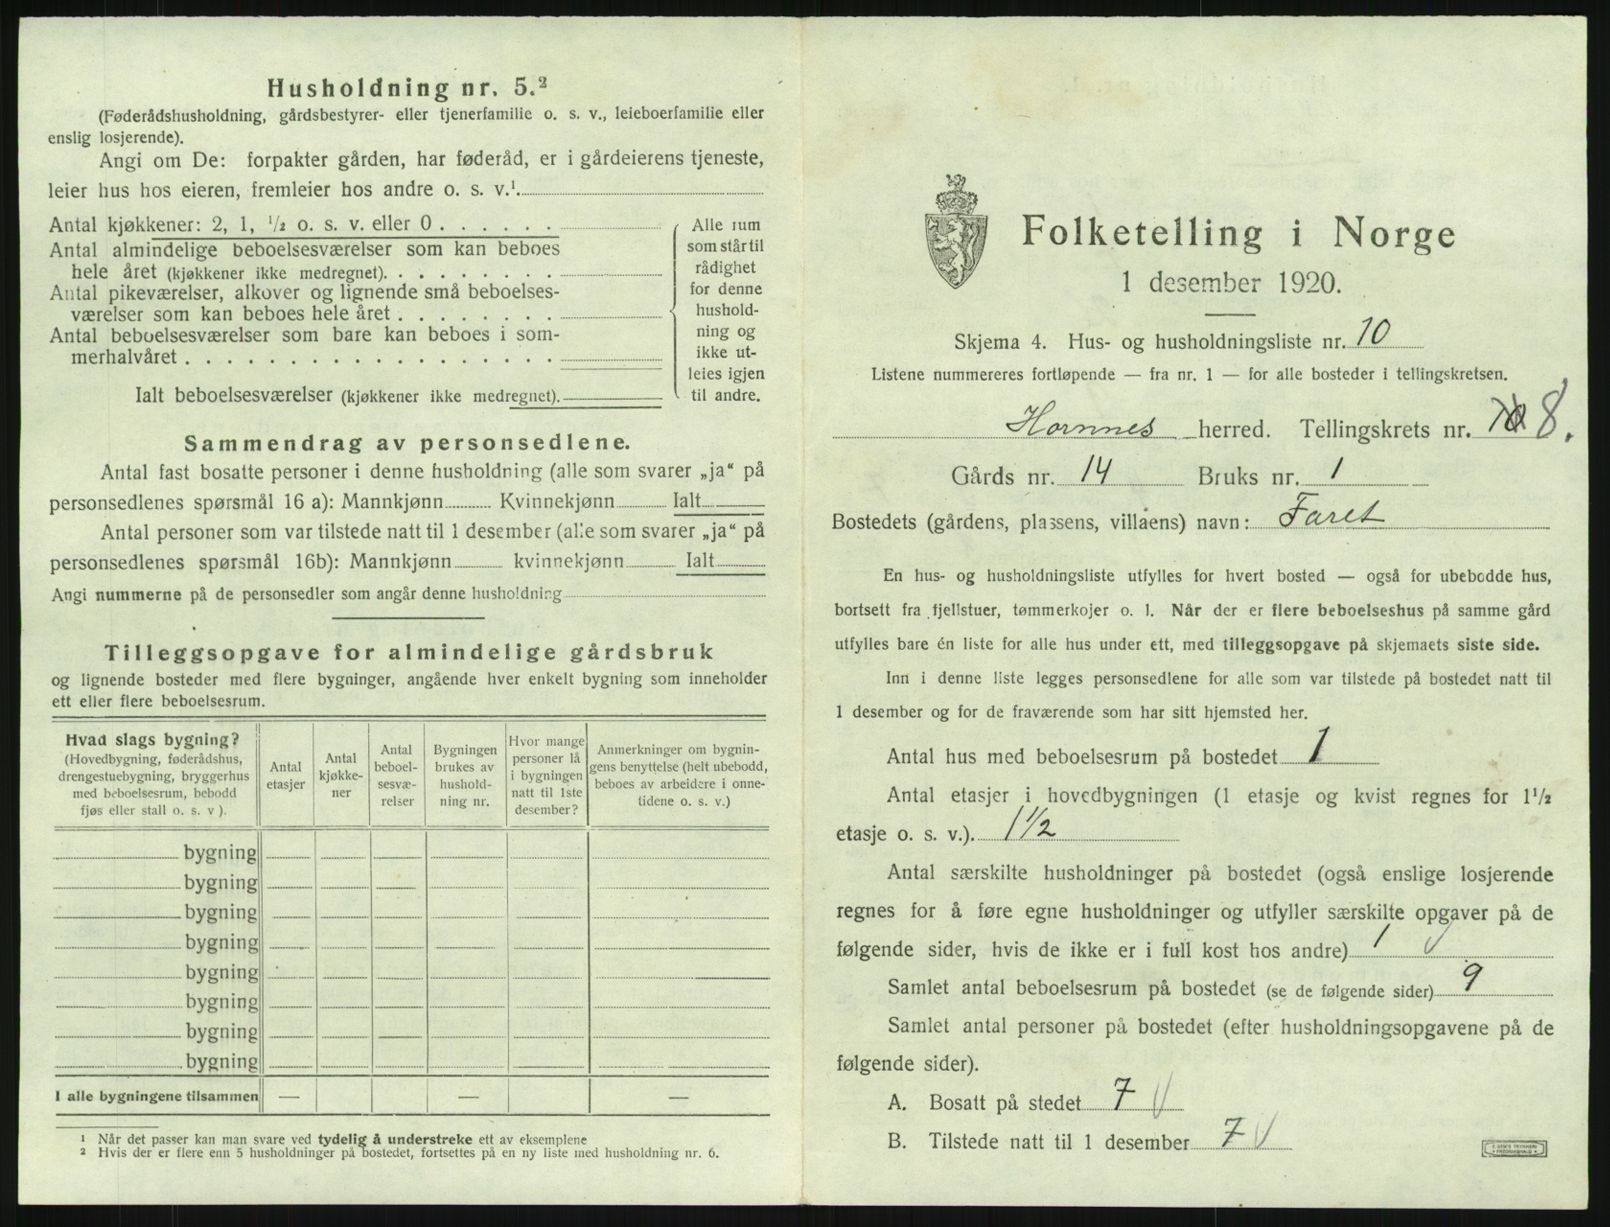 Husholdning nr. 5.²
(Føderådshusholdning, gårdsbestyrer- eller tjenerfamilie o. s. v., leieboerfamilie eller
enslig losjerende).
Angi om De: forpakter gården, har føderåd, er i gårdeierens tjeneste,
leier hus hos eieren, fremleier hos andre o. s. v.¹
Antal kjøkkener: 2, 1, ½ o. s. v. eller 0 . . . . . .
Antal almindelige beboelsesværelser som kan beboes
hele året (kjøkkener ikke medregnet). . . . . . . . .
Antal pikeværelser, alkover og lignende små beboelses-
værelser som kan beboes hele året . . . . . . . .
Antal beboelsesværelser som bare kan beboes i som-
merhalvåret . . . . . . . . . . . . . . . . . .
Ialt beboelsesværelser (kjøkkener ikke medregnet).
Alle rum
som står til
rådighet
for denne
hushold-
ning og
ikke ut-
leies igjen
til andre.
Sammendrag av personsedlene.
Antal fast bosatte personer i denne husholdning (alle som svarer „ja“ på
personsedlenes spørsmål 16 a): Mannkjønn Kvinnekjønn Ialt
Antal personer som var tilstede natt til 1 desember (alle som svarer „ja“ på
personsedlenes spørsmål 16b): Mannkjønn kvinnekjønn Ialt
Angi nummerne på de personsedler som angår denne husholdning
Tilleggsopgave for almindelige gårdsbruk
og lignende bosteder med flere bygninger, angående hver enkelt bygning som inneholder
ett eller flere beboelsesrum.
Hvad slags bygning?
(Hovedbygning, føderådshus,
drengestuebygning, bryggerhus
med beboelsesrum, bebodd
fjøs eller stall o. s. v ).
Antal
etasjer
Antal
kjøkke-
ner
Antal
beboel-
sesvæ-
relser
Bygningen
brukes av
hushold-
ning nr.
Hvor mange
personer lå
i bygningen
natt til 1ste
desember?
Anmerkninger om bygnin-
gens benyttelse (helt ubebodd,
beboes av arbeidere i onne-
tidene o. s. v.)
bygning
bygning
bygning
bygning
bygning
bygning
bygning
bygning
I alle bygningene tilsammen — — —
¹ Når det passer kan man svare ved tydelig å understreke ett av eksemplene
² Hvis der er flere enn 5 husholdninger på bostedet, fortsettes på en ny liste med husholdning nr. 6.
Folketelling i Norge
1 desember 1920.
Skjema 4. Hus- og husholdningsliste nr. 10
Listene nummereres fortløpende — fra nr. 1 — for alle bosteder i tellingskretsen.
Hornnes herred. Tellingskrets nr. 8.
Gårds nr. 14 Bruks nr. 1
Bostedets (gårdens, plassens, villaens) navn: Faret
En hus- og husholdningsliste utfylles for hvert bosted — også for ubebodde hus,
bortsett fra fjellstuer, tømmerkojer o. l. Når der er flere beboelseshus på samme gård
utfylles bare én liste for alle hus under ett, med tilleggsopgave på skjemaets siste side.
Inn i denne liste legges personsedlene for alle som var tilstede på bostedet natt til
1 desember og for de fraværende som har sitt hjemsted her.
Antal hus med beboelsesrum på bostedet 1
Antal etasjer i hovedbygningen (1 etasje og kvist regnes for 1½
etasje o. s. v.). 1½
Antal særskilte husholdninger på bostedet (også enslige losjerende
regnes for å føre egne husholdninger og utfyller særskilte opgaver på de
følgende sider, hvis de ikke er i full kost hos andre) 1
Samlet antal beboelsesrum på bostedet (se de følgende sider) 9
Samlet antal personer på bostedet (efter husholdningsopgavene på de
følgende sider).
A. Bosatt på stedet 7
B. Tilstede natt til 1 desember 7